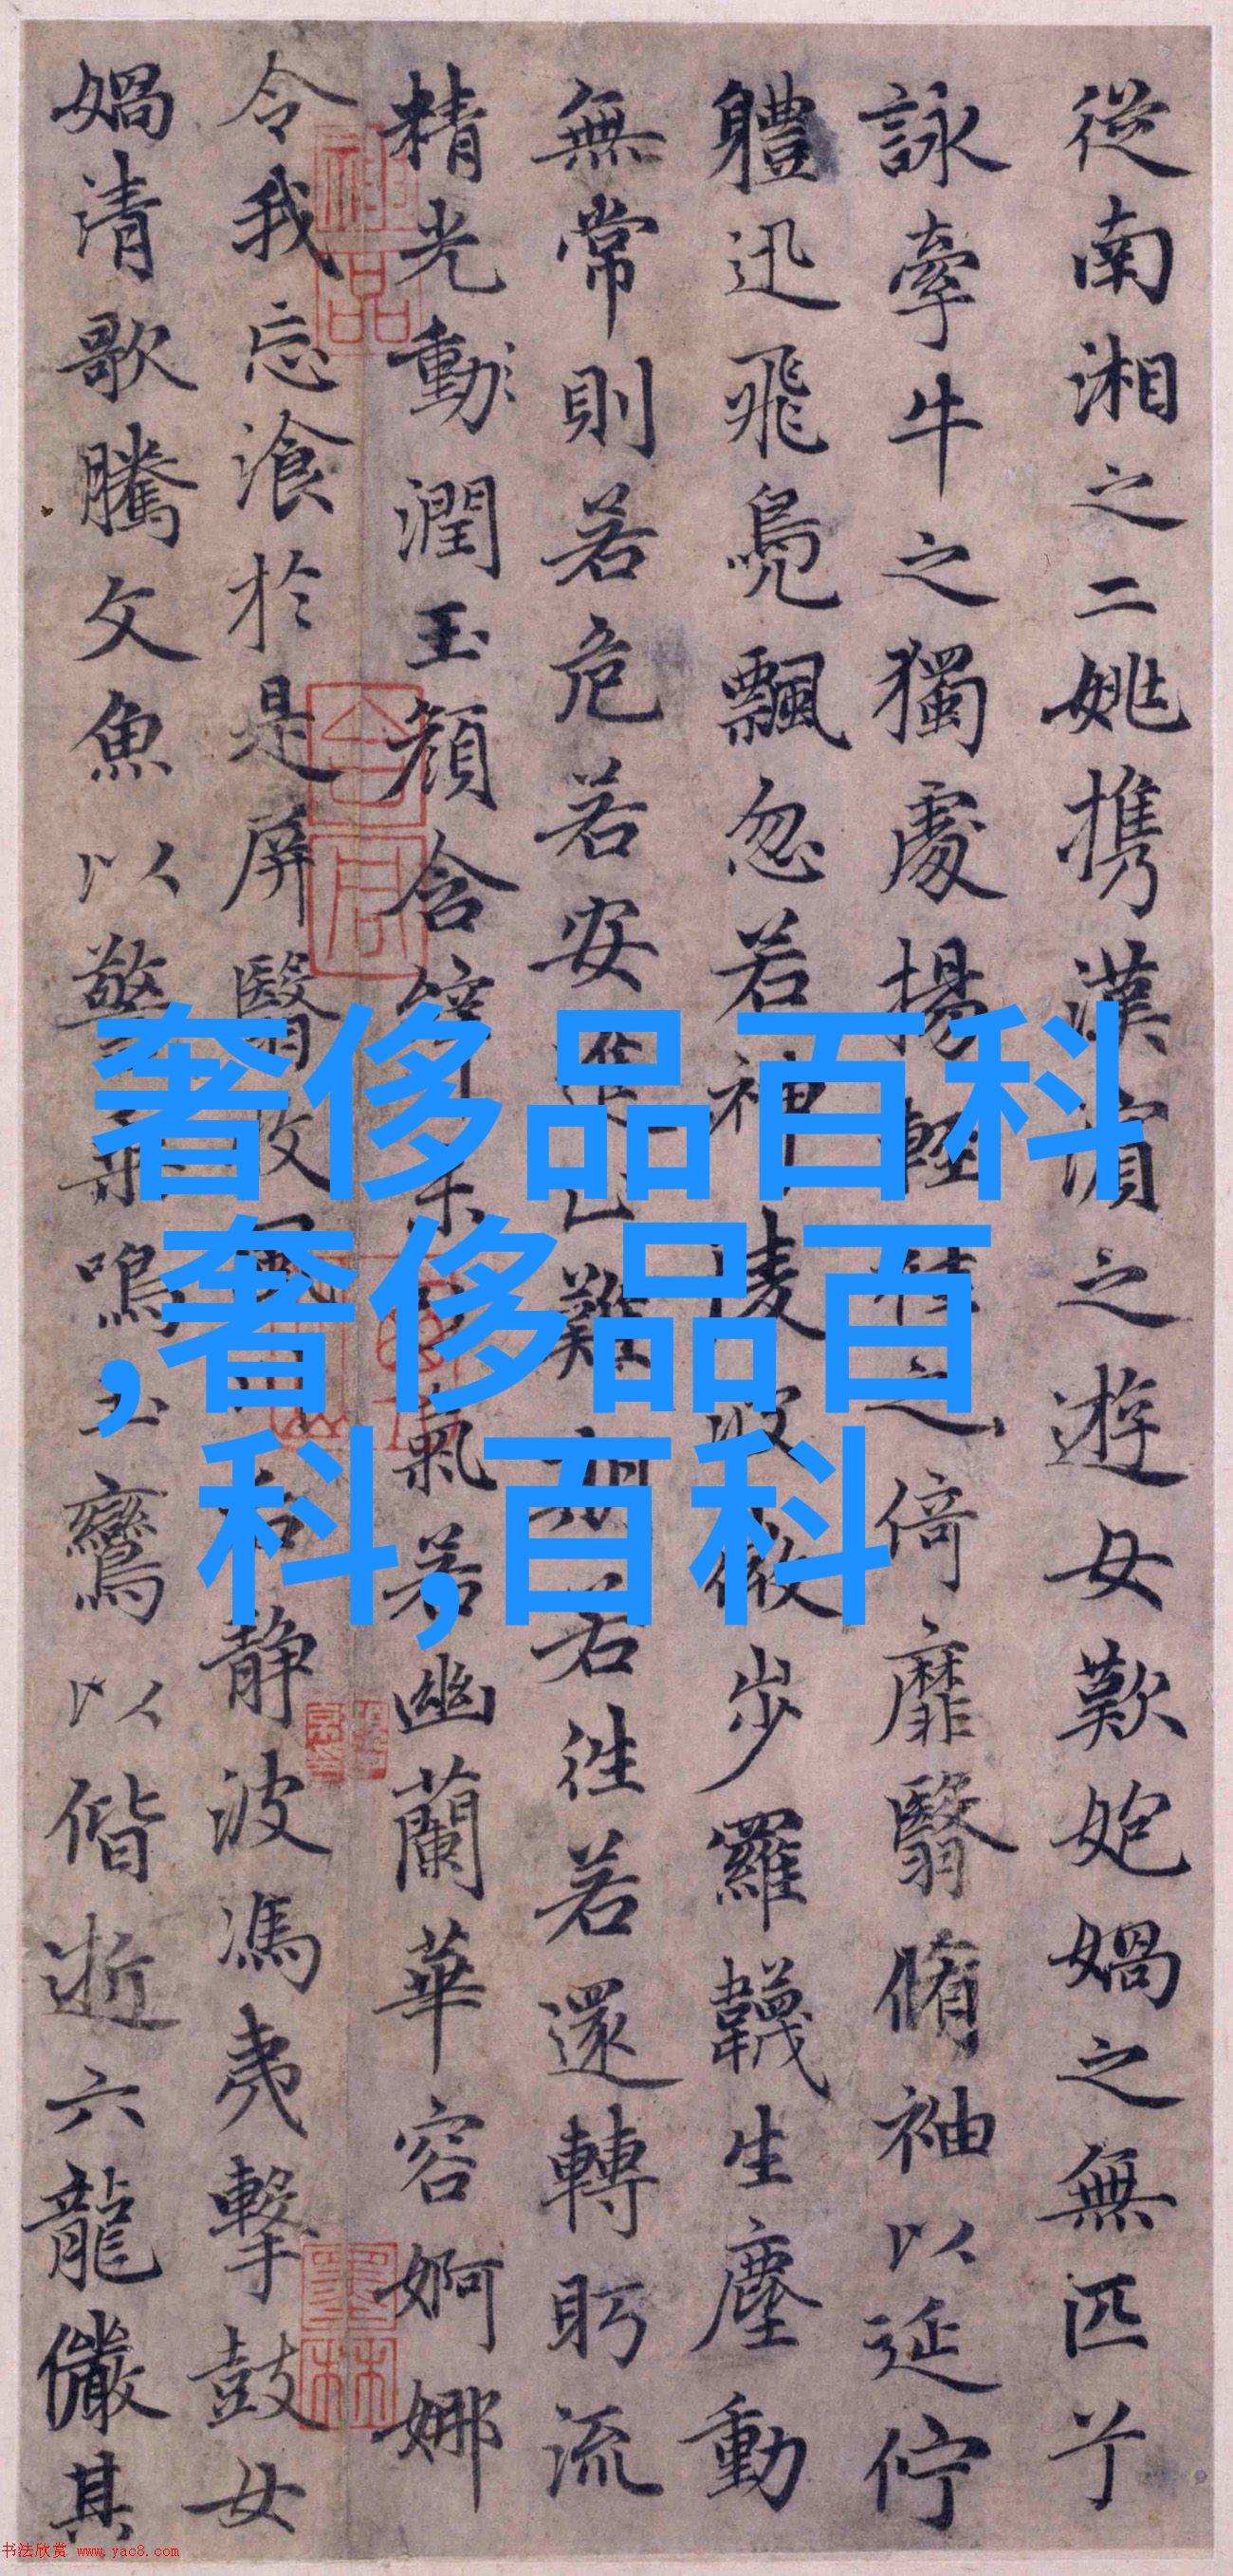 從南湘之二姚携漢濱之遊女歎㚿媧之無匹兮
詠牽牛之獨處揚輕袿之倚靡翳脩袖以延佇
軆迅飛鳧飄忽若神陵波微步羅韈生塵動
無常則若危若安難期若往若還轉眄流
精光動潤玉顏含氣若幽蘭華容婀娜
令我忘湌於是屏翳收靜波馮夷擊鼓女
媧清歌騰文魚以警鳴玉鸞以偕逝六龍儼其
奢侈品百科
,奢侈品百
科,百科
神品
墨林
书法欣赏 www.yac8.com